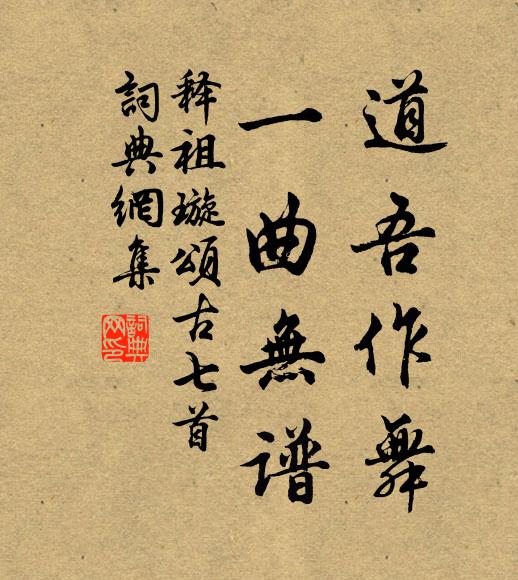 道吾作舞
一曲無譜
释祖璇頌古七首
詞典網集
詞典
网印